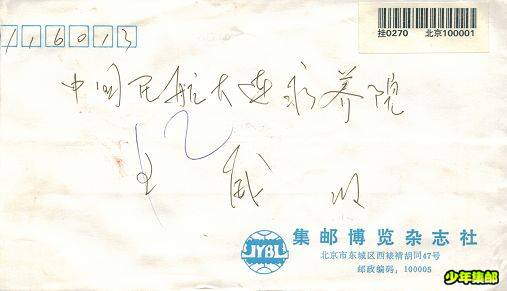 挂0270 北京100001
116013
中国民航大连疗养院
王 成
集邮博览杂志社
JYBL
北京市东城区西裱褙胡同47号
邮政编码:100005
少年集邮